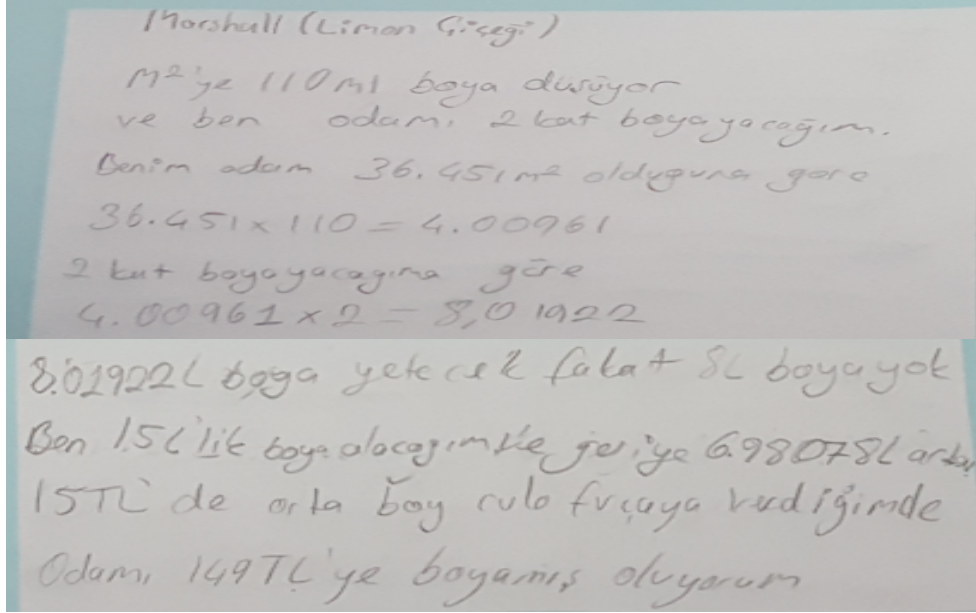 Marshall (Limon Çiçeği)
M²'ye 110ml boya düşüyor
ve ben odamı 2 kat boyayacağım.
Benim odam 36.451m² olduguna göre
36.451x110=4.00961
2 kat boyayacagıma göre
4.00961x2=8,01922
8.01922L boya yetecek fakat 8L boya yok
Ben 15L'lik boya alacagım ve geriye 6.98078L artar
15TL de orta boy rulo fırçaya verdiğimde
Odamı 149TL'ye boyamış oluyorum